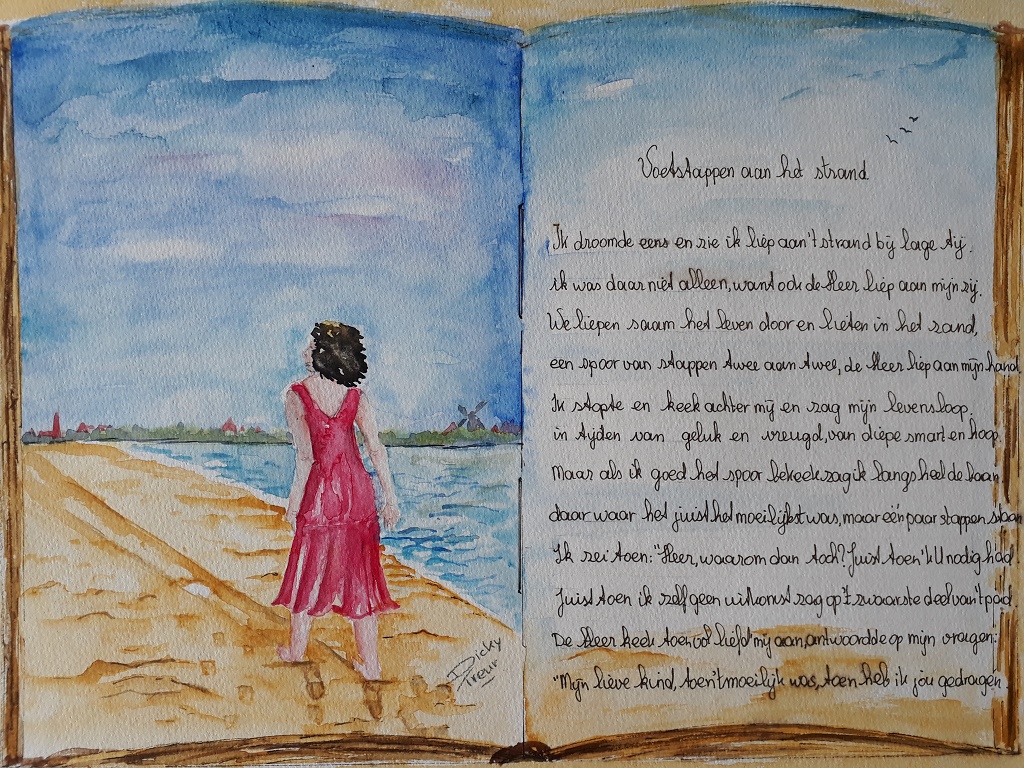 Voetstappen aan het strand
Ik droomde eens en zie ik liep aan't strand bij lage tij.
ik was daar niet alleen, want ook de Heer liep aan mijn zij.
We liepen saam het leven door en lieten in het zand,
een spoor van stappen twee aan twee, de Heer liep aan mijn hand.
Ik stopte en keek achter mij en zag mijn levensloop.
in tijden van geluk en vreugd, van diepe smart en hoop.
Maar als ik goed het spoor bekeek zag ik langs heel de baan,
daar waar het juist het moeilijkst was, maar één paar stappen staan
Ik zei toen: "Heer, waarom dan toch? Juist toen 'k U nodig had.
Juist toen ik zelf geen uitkomst zag op 't zwaarste deel van 't pad.
De Heer keek toen vol liefd' mij aan, antwoordde op mijn vragen:
"Mijn lieve kind, toen 't moeilijk was, toen heb ik jou gedragen.
Dicky
Treur